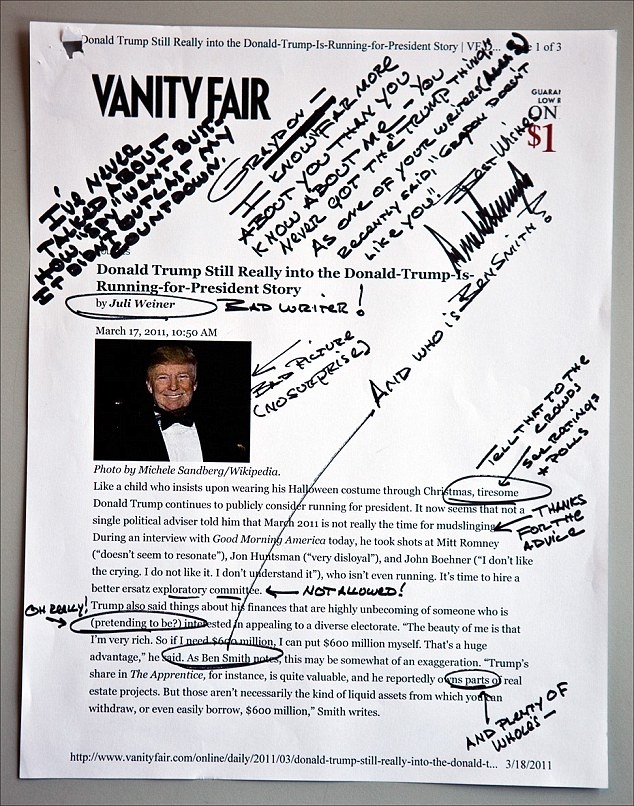 Donald Trump Still Really into the Donald-Trump-Is-Running-for-President Story | VF D... 1 of 3
VANITY FAIR
GUARAN
LOW R
ON
$1
I'VE NEVER
TALKED ABOUT BUT
HOW "SPY" WENT BUST
IT DIDN'T OUTLAST MY
COUNTDOWN!
GRAYDON—
I KNOW FAR MORE
ABOUT YOU THAN YOU
KNOW ABOUT ME—YOU
NEVER GOT THE "TRUMP THING"!
AS ONE OF YOUR WRITERS
RECENTLY SAID, "GRAYDON DOESN'T
LIKE YOU!"
BEST WISHES
Donald Trump Still Really into the Donald-Trump-Is-
Running-for-President Story
by Juli Weiner BAD WRITER!
March 17, 2011, 10:50 AM
BAD PICTURE
(NO SURPRISE)
AND WHO IS BEN SMITH?
Photo by Michele Sandberg/Wikipedia.
TELL THAT TO THE
CROWDS
SEE RATINGS
+ POLLS
Like a child who insists upon wearing his Halloween costume through Christmas, tiresome
Donald Trump continues to publicly consider running for president. It now seems that not a
single political adviser told him that March 2011 is not really the time for mudslinging.
THANKS
FOR THE
ADVICE
During an interview with Good Morning America today, he took shots at Mitt Romney
("doesn't seem to resonate"), Jon Huntsman ("very disloyal"), and John Boehner ("I don't like
the crying. I do not like it. I don't understand it"), who isn't even running. It's time to hire a
better ersatz exploratory committee. NOT ALLOWED!
OH REALLY!
Trump also said things about his finances that are highly unbecoming of someone who is
(pretending to be?) interested in appealing to a diverse electorate. "The beauty of me is that
I'm very rich. So if I need $600 million, I can put $600 million myself. That's a huge
advantage," he said. As Ben Smith notes, this may be somewhat of an exaggeration. "Trump's
share in The Apprentice, for instance, is quite valuable, and he reportedly owns parts of real
estate projects. But those aren't necessarily the kind of liquid assets from which you can
withdraw, or even easily borrow, $600 million," Smith writes.
AND PLENTY OF
WHOLES—
http://www.vanityfair.com/online/daily/2011/03/donald-trump-still-really-into-the-donald-t... 3/18/2011